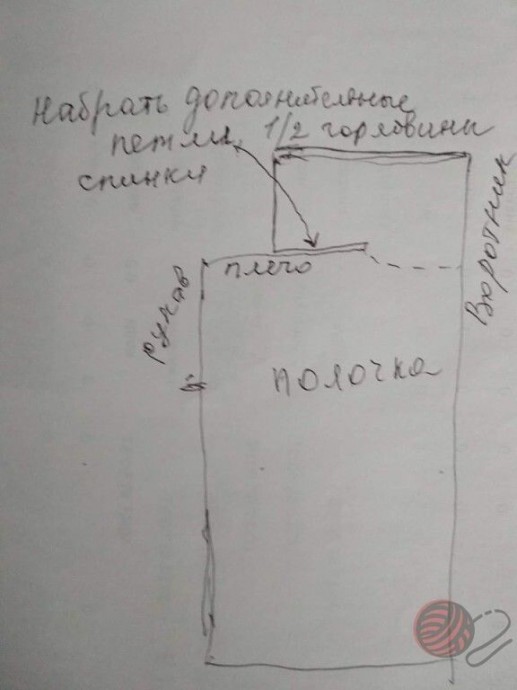 Набрать дополнительные
петли 1/2 горловины
спинки
плечо
рукав
Воротник
полочка